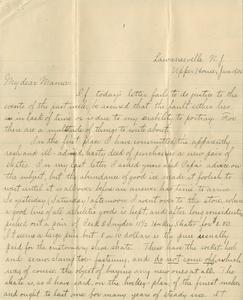 Lawrenceville N.J.
Upper House, Jan.
My dear Mamma:
If today's letter fails to do justice to the
events of the past week, be assured that the fault either lies
in lack of time or is due to my inability to portray. For
there are a multitude of things to write about.
In the first place I have committed the apparently
rash and ill-advised, hasty deed of purchasing a new pair of
skates. In my last letter I asked your and Papa's advice on
the subject, but the abundance of good ice made it foolish to
wait until it is all over before an answer has time to arrive.
So yesterday (Saturday) afternoon I went over to the store, where
a good line of all athletic goods is kept, and after long consideration,
picked out a pair of Hockey Skates for
being a large pair, but five dollars is the price usually
paid for the customary shoe skate. These have the
and screw clamp toe-fastening, and do not come off, which
was, of course, the object of buying any new ones at all. The
skate is, as I have said, on the hockey-plan, of the finest make
and ought to last one for many years of steady use. At